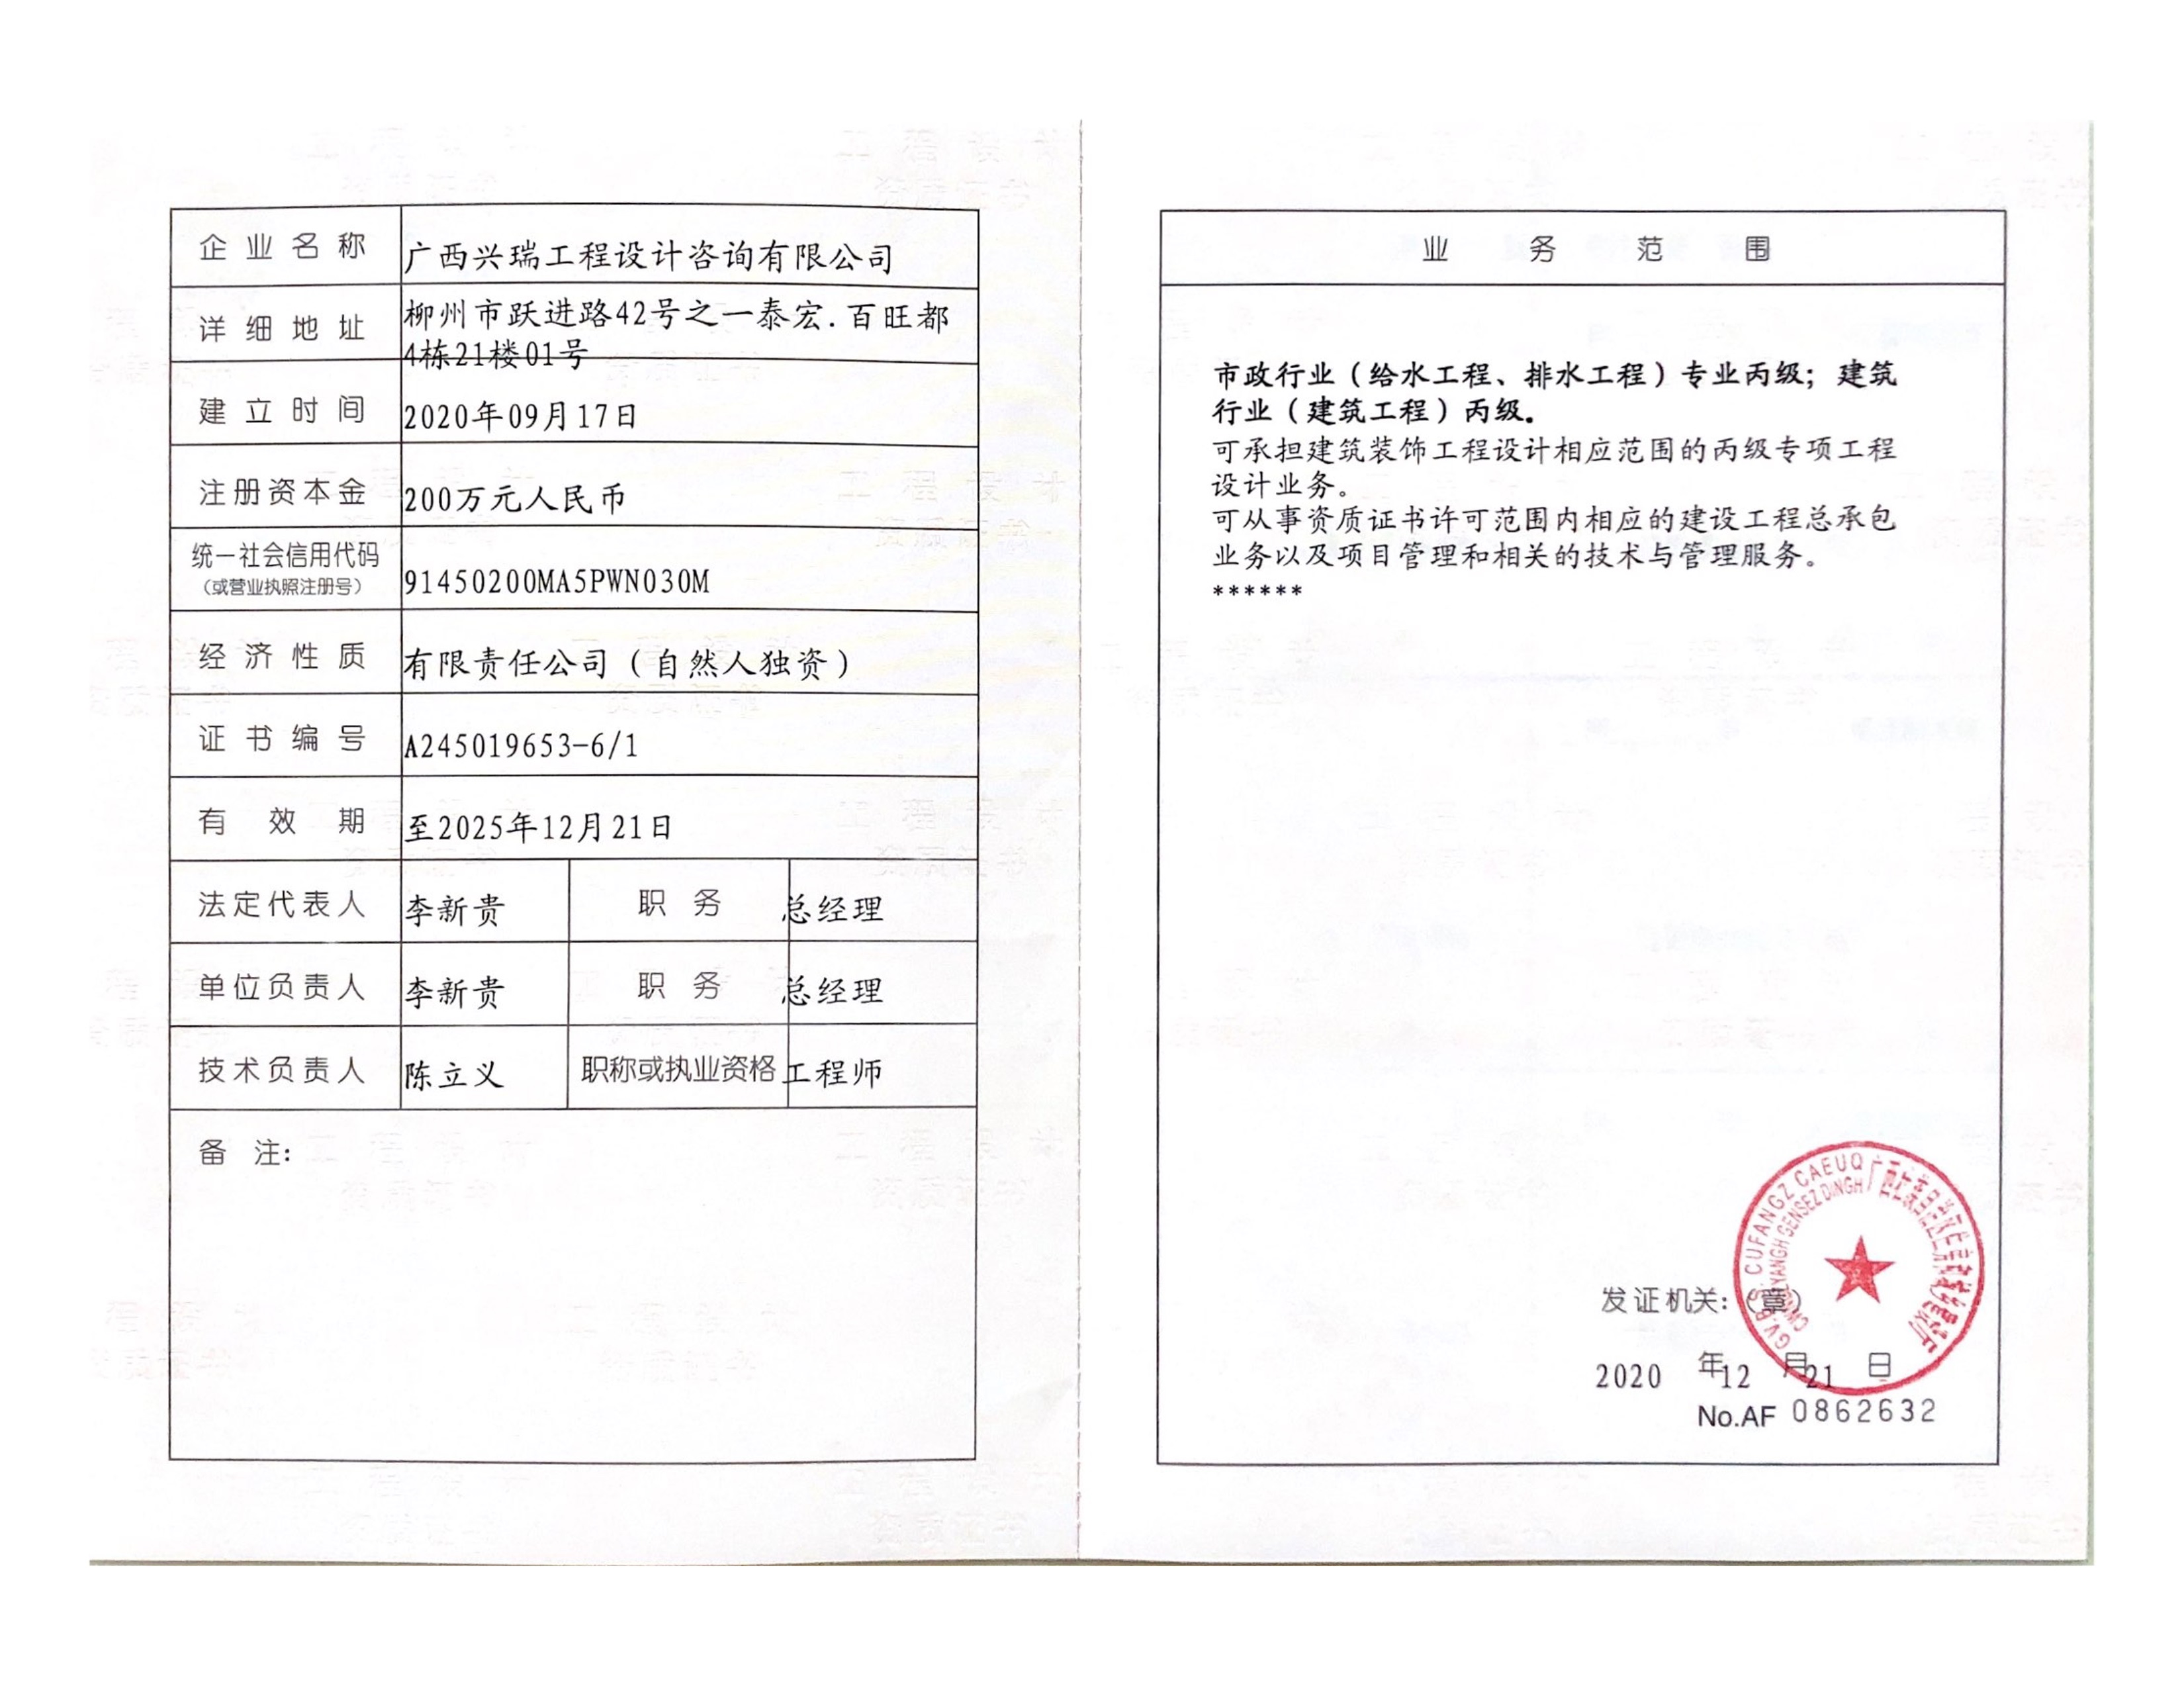 企业名称 广西兴瑞工程设计咨询有限公司
详细地址 柳州市跃进路42号之一泰宏.百旺都
4栋21楼01号
建立时间 2020年09月17日
注册资本金 200万元人民币
统一社会信用代码
（或营业执照注册号） 91450200MA5PWN030M
经济性质 有限责任公司（自然人独资）
证书编号 A245019653-6/1
有效期 至2025年12月21日
法定代表人 李新贵 职务 总经理
单位负责人 李新贵 职务 总经理
技术负责人 陈立义 职称或执业资格 工程师
备注:
业务范围
市政行业（给水工程、排水工程）专业丙级；建筑
行业（建筑工程）丙级。
可承担建筑装饰工程设计相应范围的丙级专项工程
设计业务。
可从事资质证书许可范围内相应的建设工程总承包
业务以及项目管理和相关的技术与管理服务。
******
发证机关:（章）
2020 年12 月21 日
No.AF 0862632